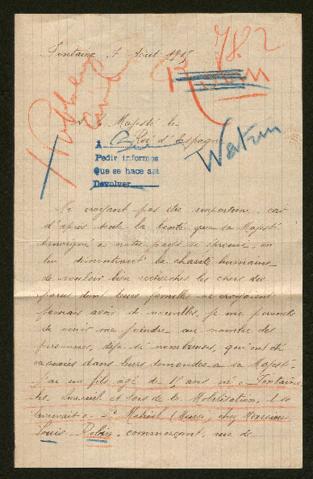 Fontaine, 7 Août 1915
782
Majesté le
Roi d'Espagne
A
Pedir informes
Que se hace así
Devolver
Ne croyant pas être importune, car
d'après toute la bonté que sa Majesté
témoigne à notre pays si éprouvé, en
lui démontrant la charité humaine
de vouloir bien rechercher les chers dis-
parus dont leurs familles ne croyaient
jamais avoir de nouvelles, je me permets
de venir me joindre au nombre des
personnes, déjà si nombreuses, qui ont été
dans leurs demandes à sa Majesté.
J'ai un fils âgé de 17 ans né à Fontaine
les Luxeuil et lors de la Mobilisation, il se
trouvait à St Mihiel (Meuse) chez Monsieur
Louis Robin, commerçant, rue de